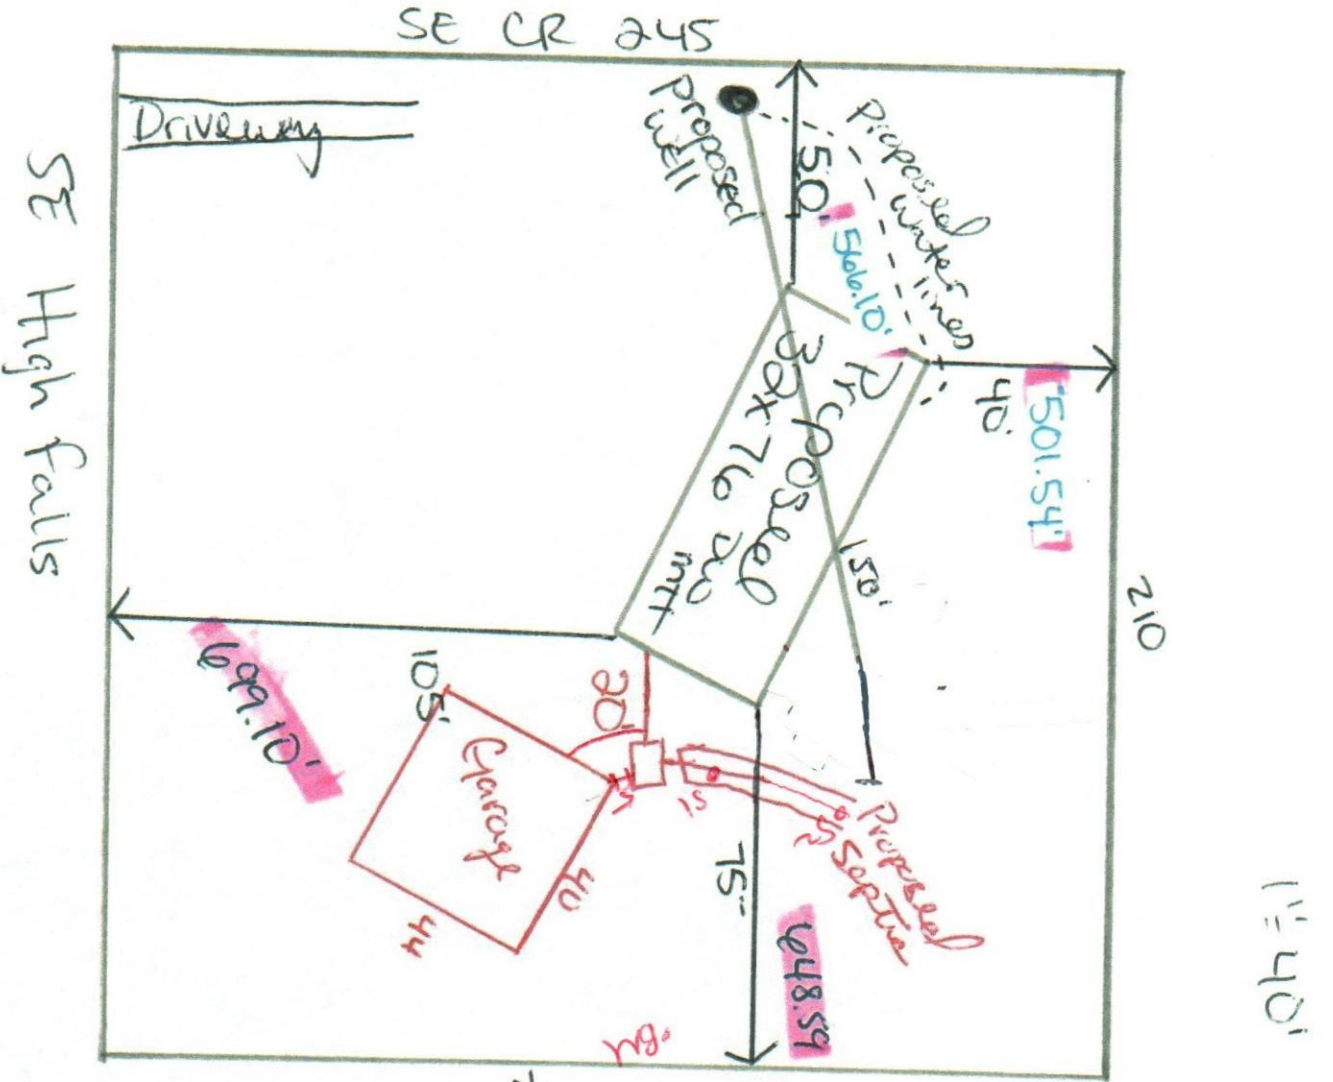 SE CR 245
Driveway
SE High Falls
proposed
well
50'
566.10'
Proposed
water
lines
40'
501.54'
210
Proposed
32x76 DW
MH
150'
699.10'
105'
20'
Garage
40
44
5
15
Proposed
Septic
75'
648.59
1"=40'